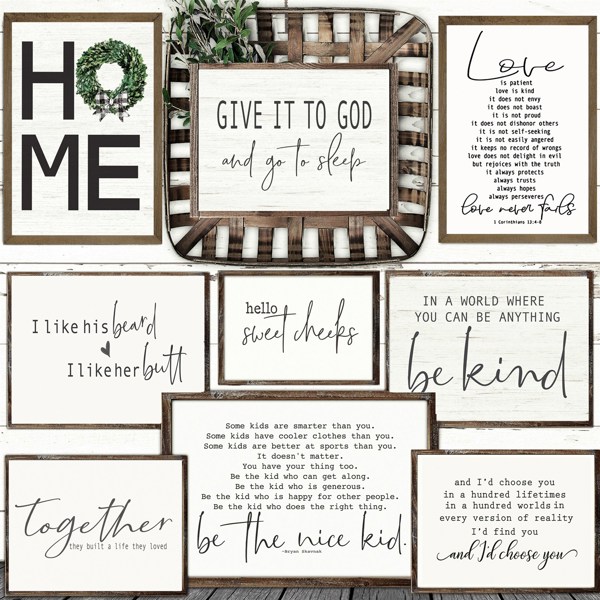 HOME
GIVE IT TO GOD
and go to sleep
Love
is patient
love is kind
it does not envy
it does not boast
it is not proud
it does not dishonor others
it is not self-seeking
it is not easily angered
it keeps no record of wrongs
love does not delight in evil
but rejoices with the truth
it always protects
always trusts
always hopes
always perseveres
love never fails
1 Corinthians 13:4-8
I like his beard
I like her butt
hello
sweet cheeks
IN A WORLD WHERE
YOU CAN BE ANYTHING
be kind
together
they built a life they loved
Some kids are smarter than you.
Some kids have cooler clothes than you.
Some kids are better at sports than you.
It doesn't matter.
You have your thing too.
Be the kid who can get along.
Be the kid who is generous.
Be the kid who is happy for other people.
Be the kid who does the right thing.
be the nice kid.
-Bryan Skavnak
and I'd choose you
in a hundred lifetimes
in a hundred worlds in
every version of reality
I'd find you
and I'd choose you